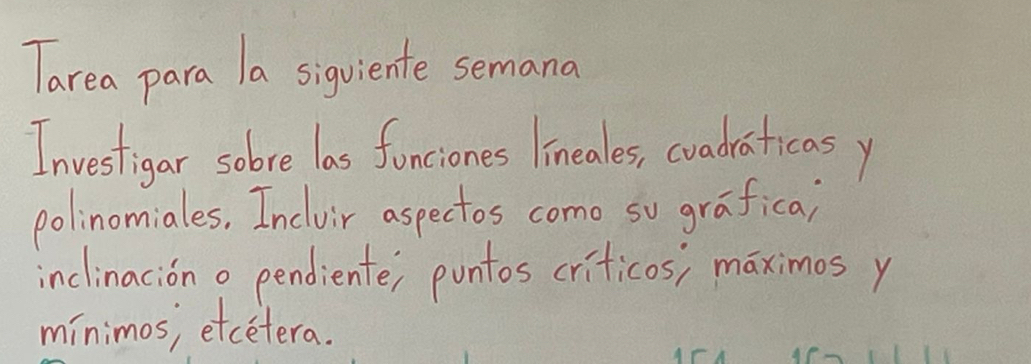 Tarea para la siguiente semana
Investigar sobre las funciones líneales, cuadráticas y
polinomiales. Incluir aspectos como su gráfica;
inclinación o pendiente; puntos críticos; máximos y
mínimos; etcétera.